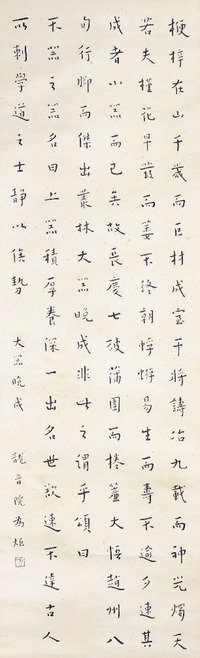 楩梓在山千歲而巨材成室干將鑄冶九載而神光燭天
若夫槿花早發而萎不終朝蜉蝣易生而壽不逾夕速其
成者小器而已矣故長慶七破蒲團而捲簾大悟趙州八
旬行腳而傑出叢林大器晚成非此之謂乎頌曰
不器之器名曰上器積厚養深一出名世欲速不達古人
所刺學道之士靜以俟勢 大器晚成 音院為炬